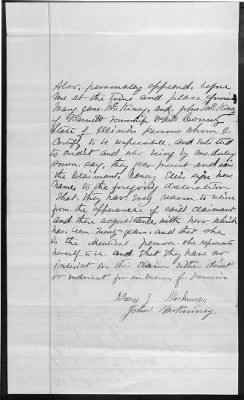 Also, personally appeared, before
me at the time and place
Mary Jane McKinney, and John McKinney
of Barnett Township DeWitt County
State of Illinois persons whom I
Certify to be respectable, and entitled
to credit and who being by me duly
sworn, say, they were present and saw
the Claimant, Nancy sign her
name, to the foregoing declaration
That, they have every reason to believe
from the appearance of said claimant
and their acquaintance with her which
has been years. and that she
is the identical person she represents
herself to be and that they have no
interest in this claim either direct
or indirect for an of pension
Mary J McKinney
John McKinney